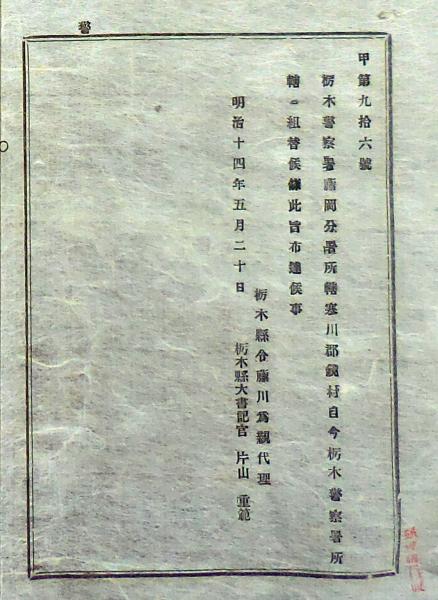 警
甲第九拾六號
栃木警察署藤岡分署所轄寒川郡鏡村自今栃木警察署所
轄ニ組替候條此旨布達候事
明治十四年五月二十日
栃木縣令藤川爲親代理
栃木縣大書記官 片山 重範